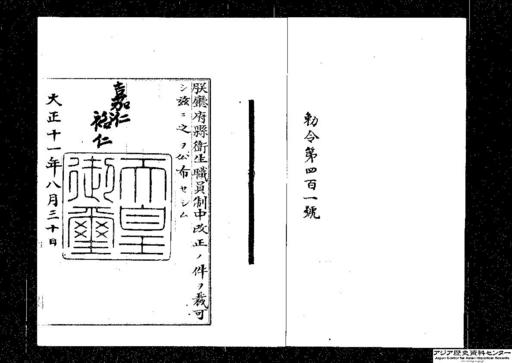 勅令第四百一號
朕廳府縣衞生職員制中改正ノ件ヲ裁可
シ茲ニ之ヲ公布セシム
嘉仁
裕仁
天皇
御璽
大正十一年八月三十日
アジア歴史資料センター
Japan Center for Asian Historical Records